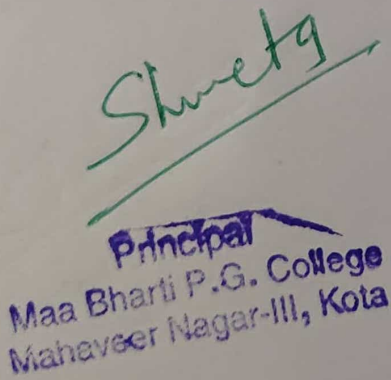 Shweta
Principal
Maa Bharti P.G. College
Mahaveer Nagar-III, Kota